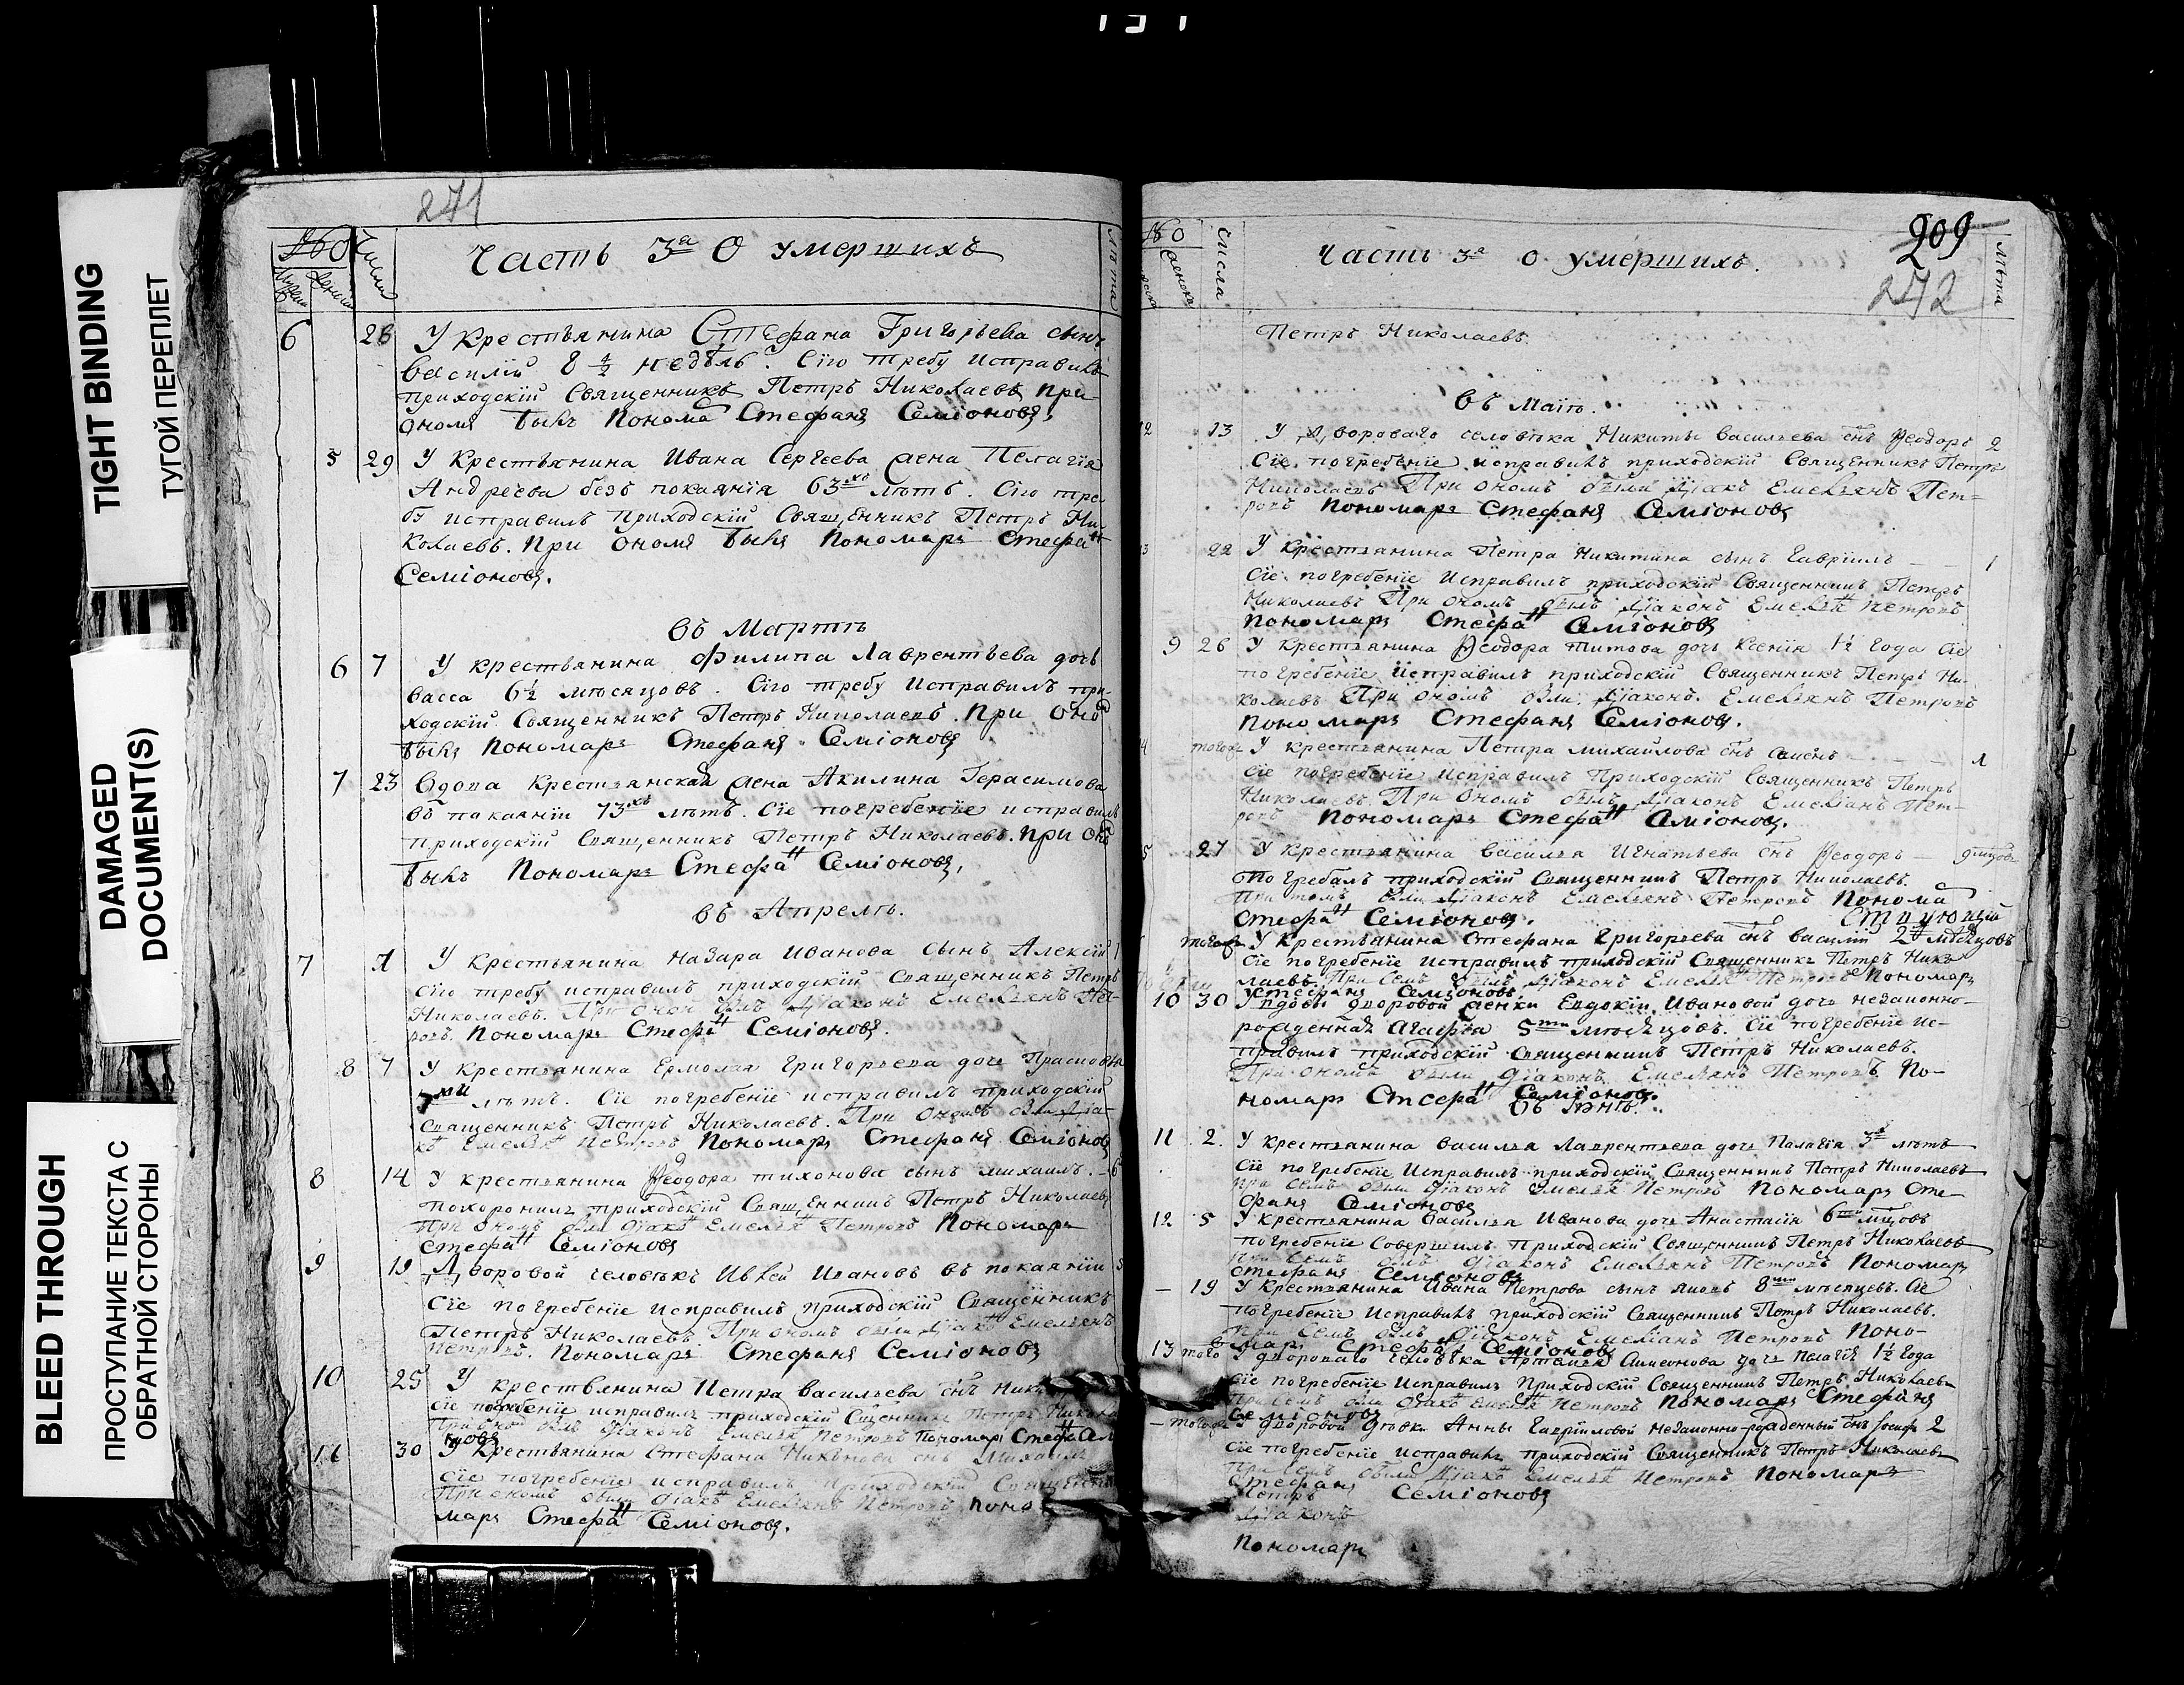 TIGHT BINDING
ТУГОЙ ПЕРЕПЛЕТ
DAMAGED
DOCUMENT(S)
BLEED THROUGH
ПРОСТУПАНИЕ ТЕКСТА С
ОБРАТНОЙ СТОРОНЫ
271
Часть 3а О умершихъ
6 28 У Крестьянина Стефана Григорьева сынъ
Василій 8 ½ недѣль. Сію требу исправилъ
приходскій Священникъ Петръ Николаевъ при
ономъ былъ Понома Стефанъ Семіоновъ,
5 29 У Крестьянина Ивана Сергѣева жена Пелагія
Андрѣева безъ покаянія 63хъ лѣтъ. Сію тре-
бу исправилъ приходскій Священникъ Петръ Ни-
колаевъ. При ономъ былъ Пономарь Стефанъ
Семіоновъ.
Въ Мартѣ
6 7 У крестьянина Филипа Лаврентьева дочь
Васса 6½ мѣсяцовъ. Сію требу Исправилъ при-
ходскій Священникъ Петръ Николаевъ. При оно
былъ Пономарь Стефанъ Семіоновъ
7 23 Вдова Крестьянская жена Акилина Герасимова
въ покаяніи 73хъ лѣтъ. Сіе погребеніе исправилъ
приходскій Священникъ Петръ Николаевъ. При оно
былъ Пономарь Стефанъ Семіоновъ,
въ Апрелѣ.
7 1 У крестьянина Назара Иванова сынъ Алексій 1
сію требу исправилъ приходскій Священникъ Петръ
Николаевъ. При оной былъ Діаконъ Емельянъ Пет-
ровъ. Пономарь Стефанъ Семіоновъ.
8 7 У крестьянина Ермолая Григорьева дочь Прасковья
7ми лѣтъ. Сіе погребеніе исправилъ приходскій
Священникъ Петръ Николаевъ. При ономъ были Діа-
къ Емельянъ Петровъ Пономарь Стефанъ Семіоновъ
8 14 У крестьянина Феодора Тихонова сынъ Михаилъ. 6
похоронилъ приходскій Священникъ Петръ Николаевъ
При ономъ были діакъ Емельянъ Петровъ Пономарь
Стефанъ Семіоновъ
9 19 Дворовой человѣкъ Ивановъ въ покаяніи 5
Сіе погребеніе Исправилъ приходскій Священникъ
Петръ Николаевъ При ономъ были Діакъ Емельянъ
Петровъ. Пономарь Стефанъ Семіоновъ
10 25 У крестьянина Петра Васильева снъ
Сіе погребеніе исправилъ приходскій Сщенникъ Петръ
При оно былъ Діаконъ Емельянъ Петровъ Пономарь Стефа
30 У Крестьянина Стефана Никонова снъ Михаилъ
Сіе погребеніе исправилъ приходскій
При ономъ были діакъ Емельянъ Петровъ Поно
марь Стефанъ Семіоновъ.
числа
Часть 3а о умершихъ.
209
272
лѣта
Петръ Николаевъ.
Въ Маіѣ.
13 У Двороваго человѣка Никиты Васильева снъ Феодоръ 2
Сіе погребеніе исправилъ приходскій Священникъ Петръ
Николаевъ При ономъ были Діакъ Емельянъ Пет-
ровъ Пономарь Стефанъ Семіоновъ
22 У крестьянина Петра Никитина сынъ Гавріилъ — — 1
Сіе погребеніе Исправилъ приходскій Священникъ Петръ
Николаевъ При ономъ былъ Діаконъ Емельянъ Петровъ
Пономарь Стефанъ Семіоновъ
9 26 У Крестьянина Феодора Титова дочь Ксенія 1½ года Сіе
погребеніе исправилъ приходскій Священникъ Петръ Ни-
колаевъ При ономъ были Діаконъ. Емельянъ Петровъ
Пономарь Стефанъ Семіоновъ.
тогожъ У крестьянина Петра Михайлова снъ Семенъ — — 1
Сіе погребеніе исправилъ Приходскій Священникъ Петръ
Николаевъ. При ономъ былъ Діаконъ Емельянъ Пет-
ровъ Пономарь Стефанъ Семіоновъ.
27 У Крестьянина Василья Игнатьева снъ Феодоръ — 9 мцовъ
погребалъ приходскій Священникъ Петръ Николаевъ.
При томъ были Діаконъ Емельянъ Петровъ Понома
Стефанъ Семіоновъ.
тогожъ У крестьянина Стефана Григорьева снъ Василій мѣсяцовъ
Сіе погребеніе исправилъ приходскій Священникъ Петръ Нико-
лаевъ. При семъ былъ Діаконъ Емельянъ Петровъ Пономарь
Стефанъ Семіоновъ.
10 30 У вдовы дворовой женки Евдокіи Ивановой дочь незаконно-
рожденная Агафья 5ти мѣсяцовъ. Сіе погребеніе ис-
правилъ приходскій Священникъ Петръ Николаевъ.
При ономъ были діаконъ Емельянъ Петровъ. По-
номарь Стефанъ Семіоновъ.
Въ Іюнѣ.
11 2. У крестьянина Василья Лаврентьева дочь Палагія 3 лѣтъ
Сіе погребеніе Исправилъ приходскій Священникъ Петръ Николаевъ
При семъ были діаконъ Емельянъ Петровъ Пономарь Сте-
фанъ Семіоновъ
12 5 У крестьянина Василья Иванова дочь Анастасія 6ти мцовъ
погребеніе Совершилъ приходскій Священникъ Петръ Николаевъ
При семъ былъ діаконъ Емельянъ Петровъ Пономарь
Стефанъ Семіоновъ
— 19 У Крестьянина Ивана Петрова сынъ 8ми мѣсяцевъ. Сіе
погребеніе Исправилъ приходскій Священникъ Петръ Николаевъ.
При семъ былъ діаконъ Емельянъ Петровъ Поно-
марь Стефанъ Семіоновъ
13 того У двороваго человѣка Артемья Симеонова дочь Пелагія 1½ года
Сіе погребеніе Исправилъ Приходскій Священникъ Петръ Николаевъ
При семъ были діакъ Емельянъ Петровъ Пономарь Стефанъ
Семіоновъ
— тогожъ У дворовой дѣвки Анны Гавріиловой незаконно-рожденный снъ Іосифъ 2
Сіе погребеніе исправилъ приходскій Священникъ Петръ Николаевъ
При семъ были Діакъ Емельянъ Петровъ Пономарь
Стефанъ Семіоновъ
Петръ
Діаконъ
Пономарь